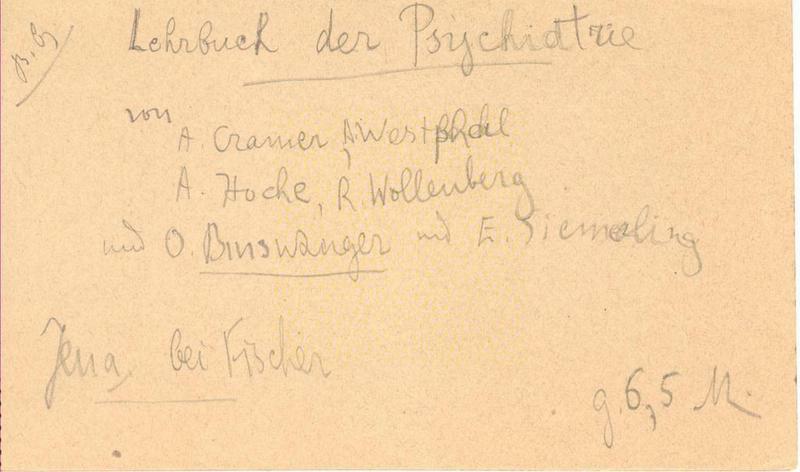 Lehrbuch der Psychiatrie
von
A. Cramer, A. Westphal
A. Hoche, R. Wollenberg
und O. Binswanger und E. Siemerling
Jena, bei Fischer
g. 6,5 M.